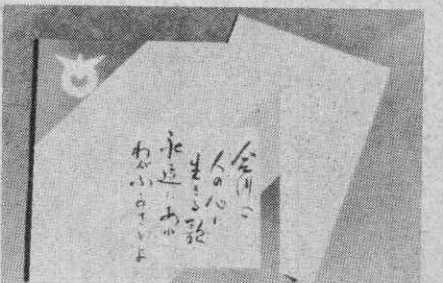 人の心に
生きる歌
永遠にあれ
わがふるさとよ